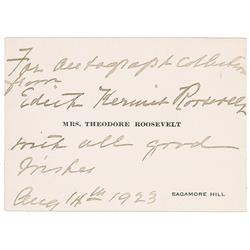 For autograph collection
from
Edith Kermit Roosevelt
MRS. THEODORE ROOSEVELT
with all good
wishes
Aug 14th 1923
SAGAMORE HILL